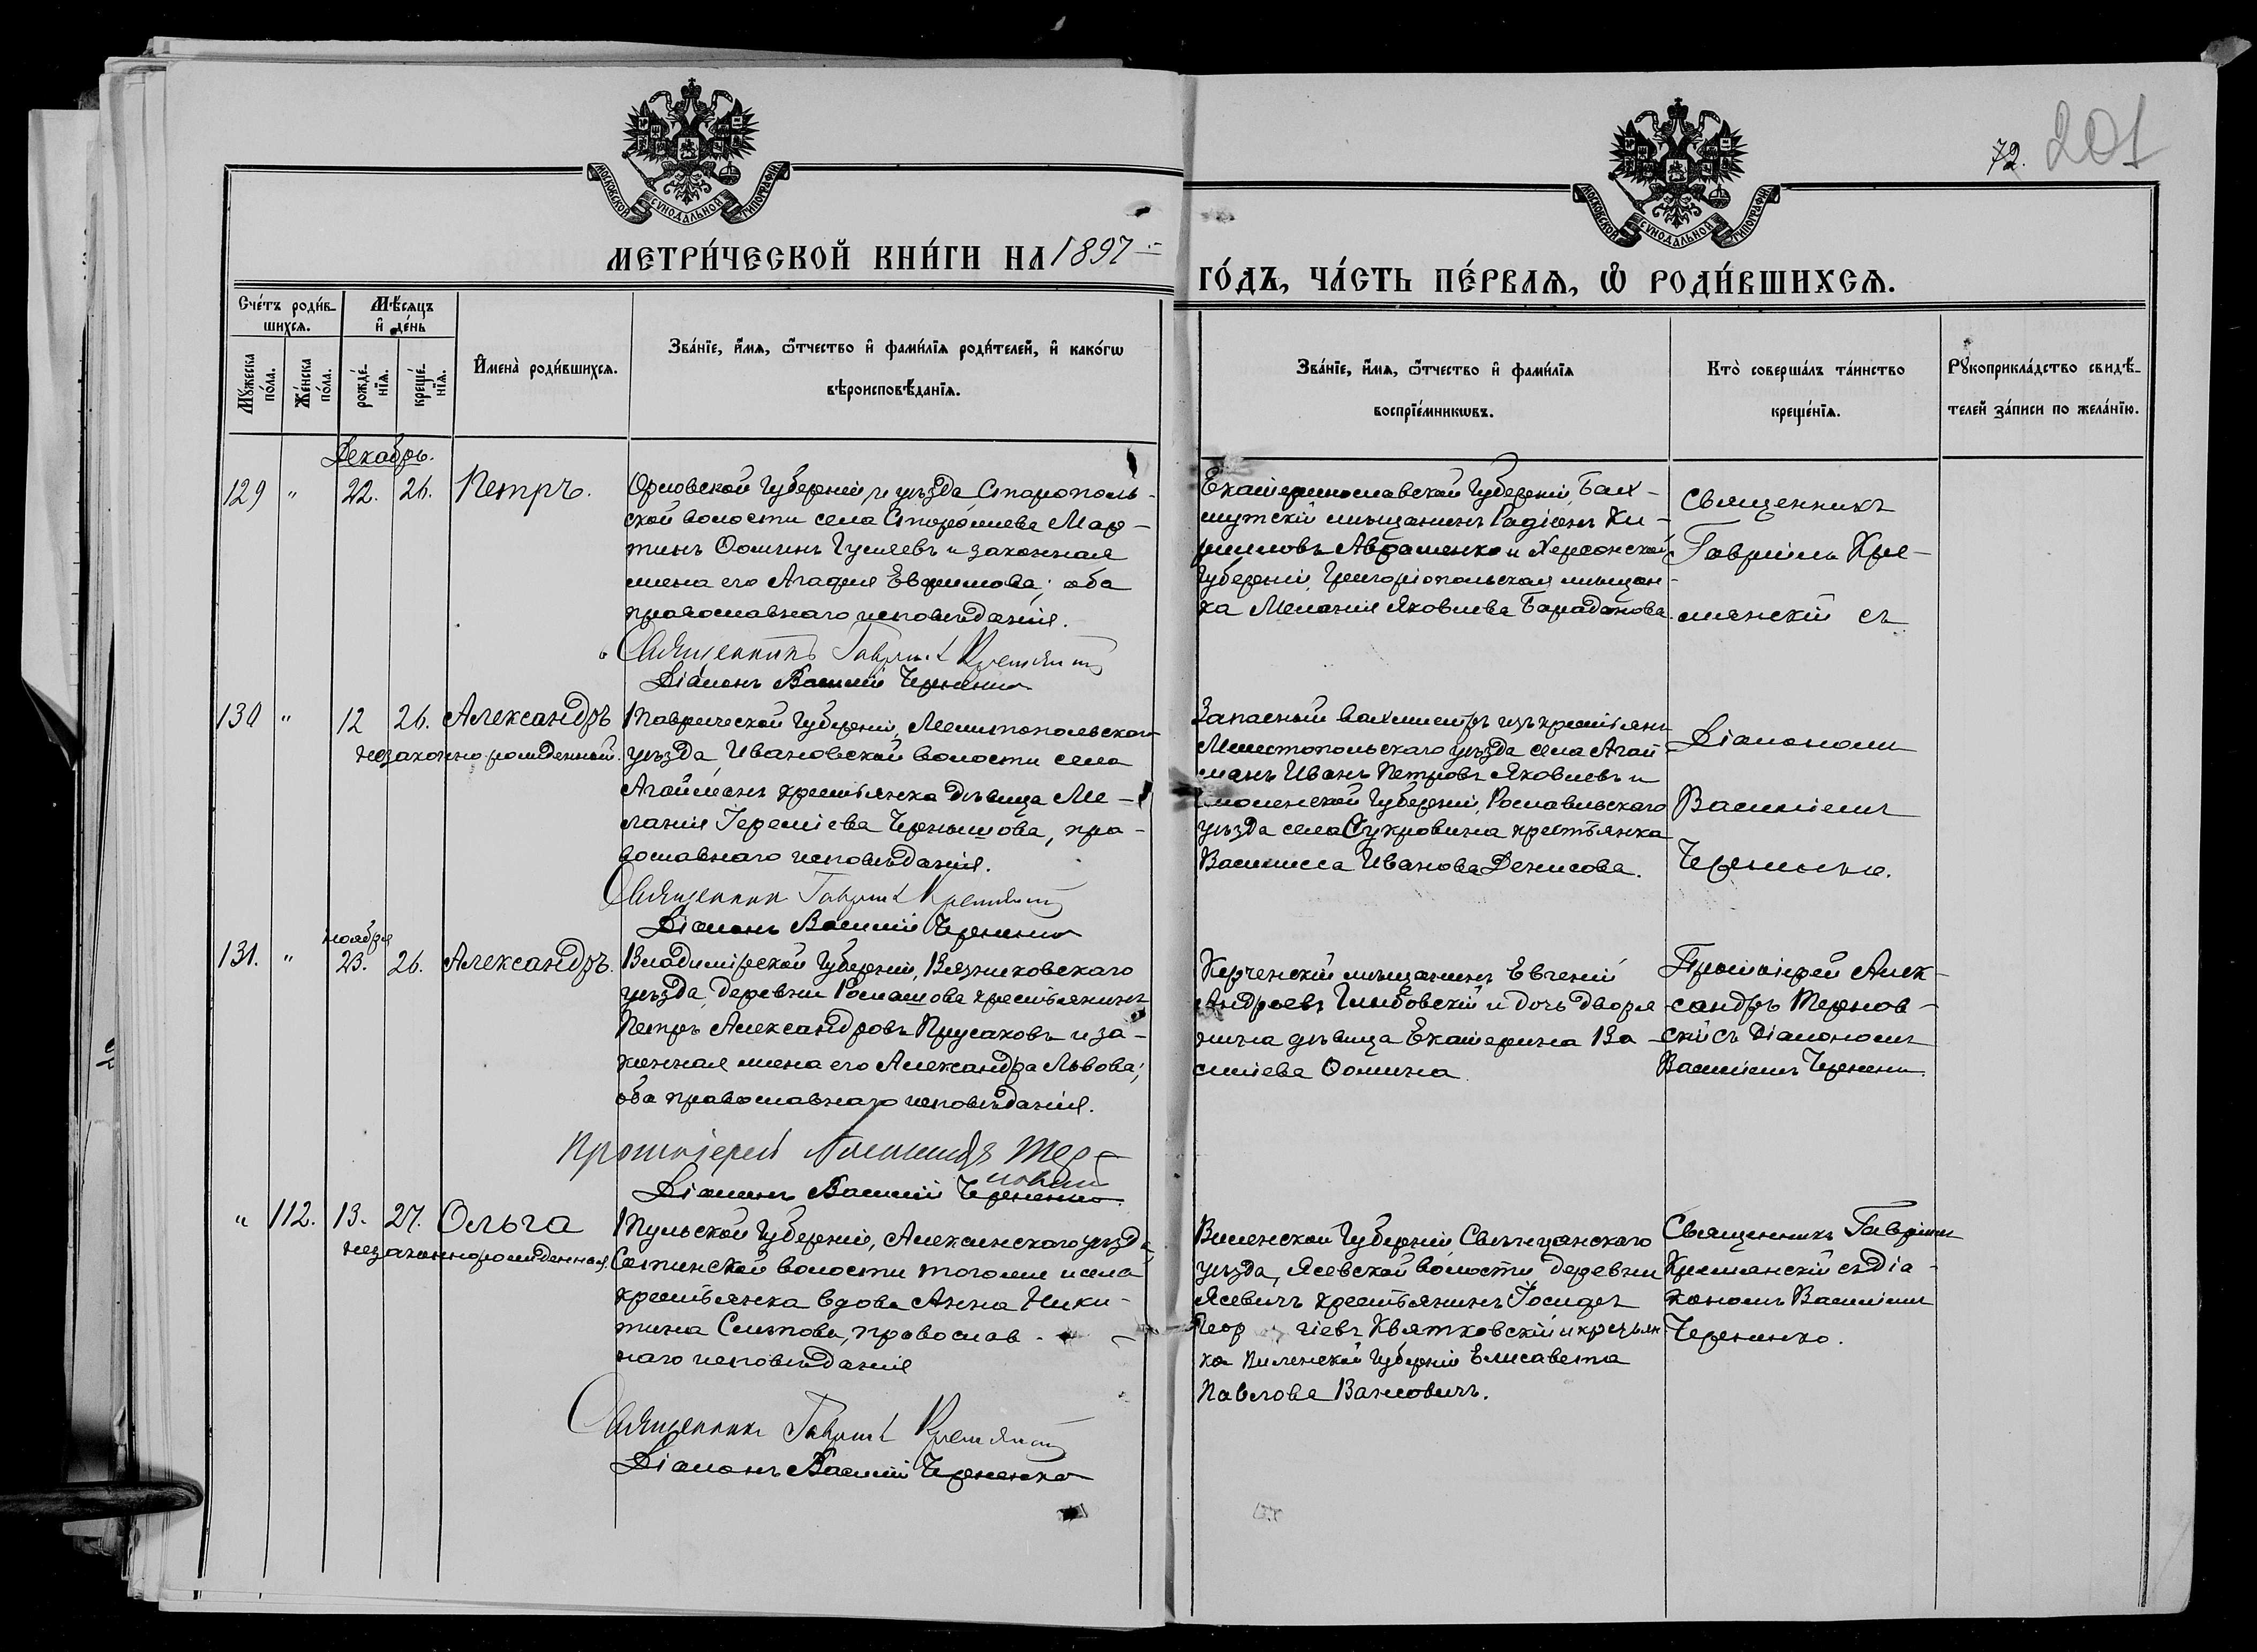 72. 201
МОСКОВСКОЙ СѴНОДАЛЬНОЙ ТИПОГРАФІИ
МОСКОВСКОЙ СѴНОДАЛЬНОЙ ТИПОГРАФІИ
МЕТРИ́ЧЕСКОЙ КНИ́ГИ НА 1897
ГО́ДЪ, ЧА́СТЬ ПЕ́РВАЯ, Ѡ РОДИ́ВШИХСЯ.
Сче́тъ роди́в-
шихся.
Мѣ́сяцъ
и де́нь
Мꙋ́жеска по́ла.
Же́нска по́ла.
рожде́-
нїя.
креще́-
нїя.
Имена̀ роди́вшихся.
Зва́нїе, и́мя, ѻ҆́тчество и фами́лїя роди́телей, и како́гѡ
вѣроисповѣ́данїя.
Зва́нїе, и́мя, ѻ҆́тчество и фами́лїя
воспрїе́мникѡвъ.
Кто̀ соверша́лъ та́инство
креще́нїя.
Рꙋкоприкла́дство свидѣ́-
телей за́писи по жела́нїю.
Декабрь.
129 " 22. 26. Петръ.
Орловской Губерніи и уѣзда Старополь-
ской волости села Мар-
тинъ Ѳоминъ Гуляевъ и законная
жена его Агафія Евфимова; оба
православнаго исповѣданія.
Священникъ Гавріилъ Кремянскій
Діаконъ Василій Черненко
Екатеринославской Губерніи Бах-
мутскій мѣщанинъ Радіонъ Ки-
рилловъ Аврашенко и Херсонской
Губерніи Григоріопольская мѣщан-
ка Меланія Яковлева Барадакова.
Священникъ
Гавріилъ Кре-
мянскій съ
130 " 12 26. Александръ
незаконнорожденный.
Таврической Губерніи, Мелитопольскаго
уѣзда, Ивановской волости села
Агайманъ крестьянка дѣвица Ме-
ланія Іереміева Чернышова, пра-
вославнаго исповѣданія.
Священникъ Гавріилъ Кремянскій
Діаконъ Василій Черненко
Запасный вахмистръ изъ крестьянъ
Мелитопольскаго уѣзда села Агай-
манъ Иванъ Петровъ Яковлевъ и
Смоленской Губерніи, Рославльскаго
уѣзда села крестьянка
Василисса Иванова Денисова.
Діакономъ
Василіемъ
Черненко.
131. " ноября 23. 26. Александръ.
Владимірской Губерніи, Вязниковскаго
уѣзда, деревни Ромашова крестьянинъ
Петръ Александровъ Прусаковъ и за-
конная жена его Александра Львова;
оба православнаго исповѣданія.
Протоіерей Александръ Тер-
новскій
Діаконъ Василій Черненко.
Керченскій мѣщанинъ Евгеній
Андреевъ Глыбовскій и дочь дворя-
нина дѣвица Екатерина Ва-
сильева Ѳомина.
Протоіерей Алек-
сандръ Тернов-
скій съ Діакономъ
Василіемъ Черненко.
" 112. 13. 27. Ольга
незаконнорожденная.
Тульской Губерніи, Алексинскаго уѣзда,
Сотинской волости того же и села
крестьянка вдова Анна Ники-
тина Силпова, православ-
наго исповѣданія
Священникъ Гавріилъ Кремянскій
Діаконъ Василій Черненко
Виленской Губерніи Свѣнцянскаго
уѣзда, Ясевской волости деревни
Ясевичъ крестьянинъ Іосифъ
Геор гіевъ Квятковскій и крестьян
ка Виленской Губерніи Елисавета
Павлова Вансовичъ.
Священникъ Гавріилъ
Кремянскій съ діа-
кономъ Василіемъ
Черненко.